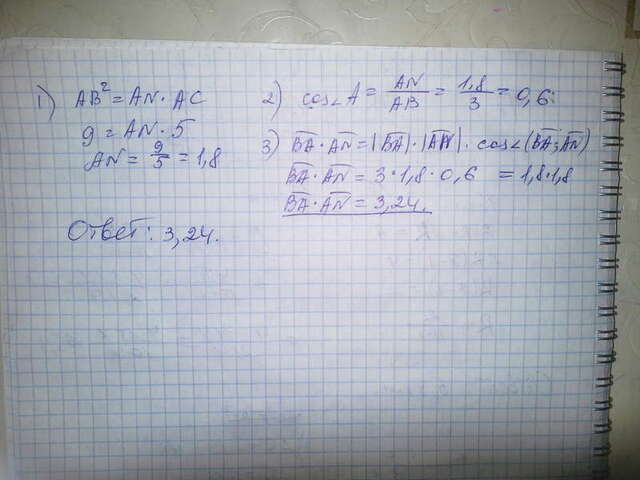 1) AB² = AN · AC
9 = AN · 5
AN = 9/5 = 1,8
2) cos∠A = AN/AB = 1,8/3 = 0,6.
3) B̅A̅ · A̅N̅ = |B̅A̅| · |A̅N̅| · cos∠(B̅A̅; A̅N̅)
B̅A̅ · A̅N̅ = 3 · 1,8 · 0,6 = 1,8 · 1,8
B̅A̅ · A̅N̅ = 3,24.
Ответ: 3,24.